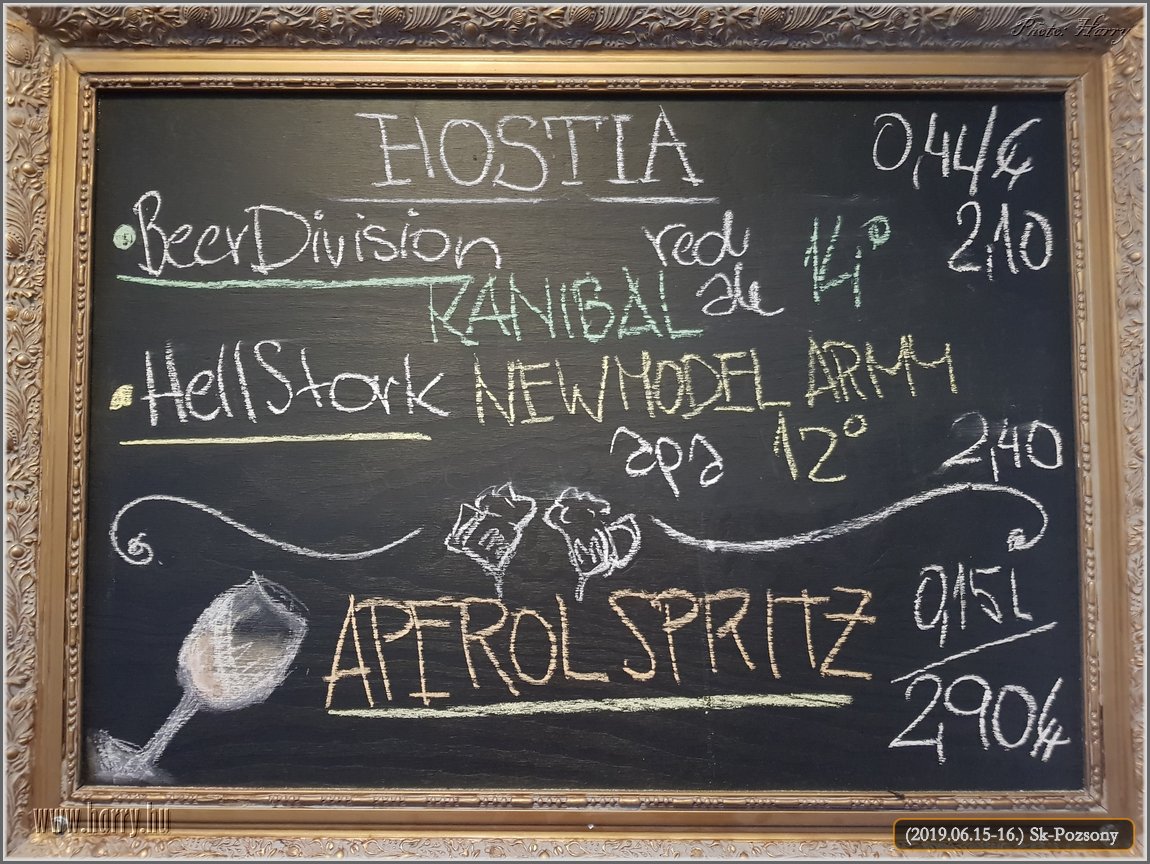 Photo: Harry
HOSTIA 0,4L/€
BeerDivision red 14° 2,10
KANIBAL ale
HellStork NEW MODEL ARMY
apa 12° 2,40
APEROL SPRITZ 0,15L
2,90€
www.harry.hu
(2019.06.15-16.) Sk-Pozsony